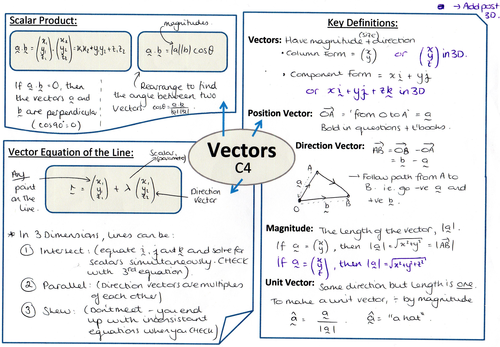 → Add post
30.
Scalar Product:
magnitudes.
a.b = (x₁ y₁ z₁).(x₁ y₁ z₁) = xx₁+yy₁+z₁z₁
a.b = |a||b| cosθ
If a.b = 0, then
the vectors a and
b are perpendicular
(cos90=0)
Rearrange to find
the angle between two
vectors
cosθ = a.b / |b||a|
Vector Equation of the Line:
Scalar
(parameter)
Any
point
on the
line.
r = (x₁ y₁ z₁) + λ (x₂ y₂ z₂)
Direction
Vector
* In 3 Dimensions, lines can be:
① Intersect: (equate i, j and k and solve for
scalars simultaneously. CHECK
with 3rd equation).
② Parallel: (Direction vectors are multiples
of each other)
③ Skew: (Don't meet - you end
up with inconsistent
equations when you CHECK)
Vectors
C4
Key Definitions:
Vectors: Have magnitude + direction
(size)
• Column form = (x y) or (x y z) in 3D.
• Component form = xi + yj
or xi + yj + zk in 3D
Position Vector: OA = 'from O to A' = a
Bold in questions + t'books.
Direction Vector: AB = OB - OA
= b - a
→ Follow path from A to
B i.e. go -ve a and
+ve b.
A
a
O
b
B
Magnitude: The length of the vector, |a|.
If a = (x y), then |a| = √x²+y² = |AB|
If a = (x y z), then |a| = √x²+y²+z²
Unit Vector: Same direction but length is one.
To make a unit vector, ÷ by magnitude
â = a / |a|
â = "a hat"